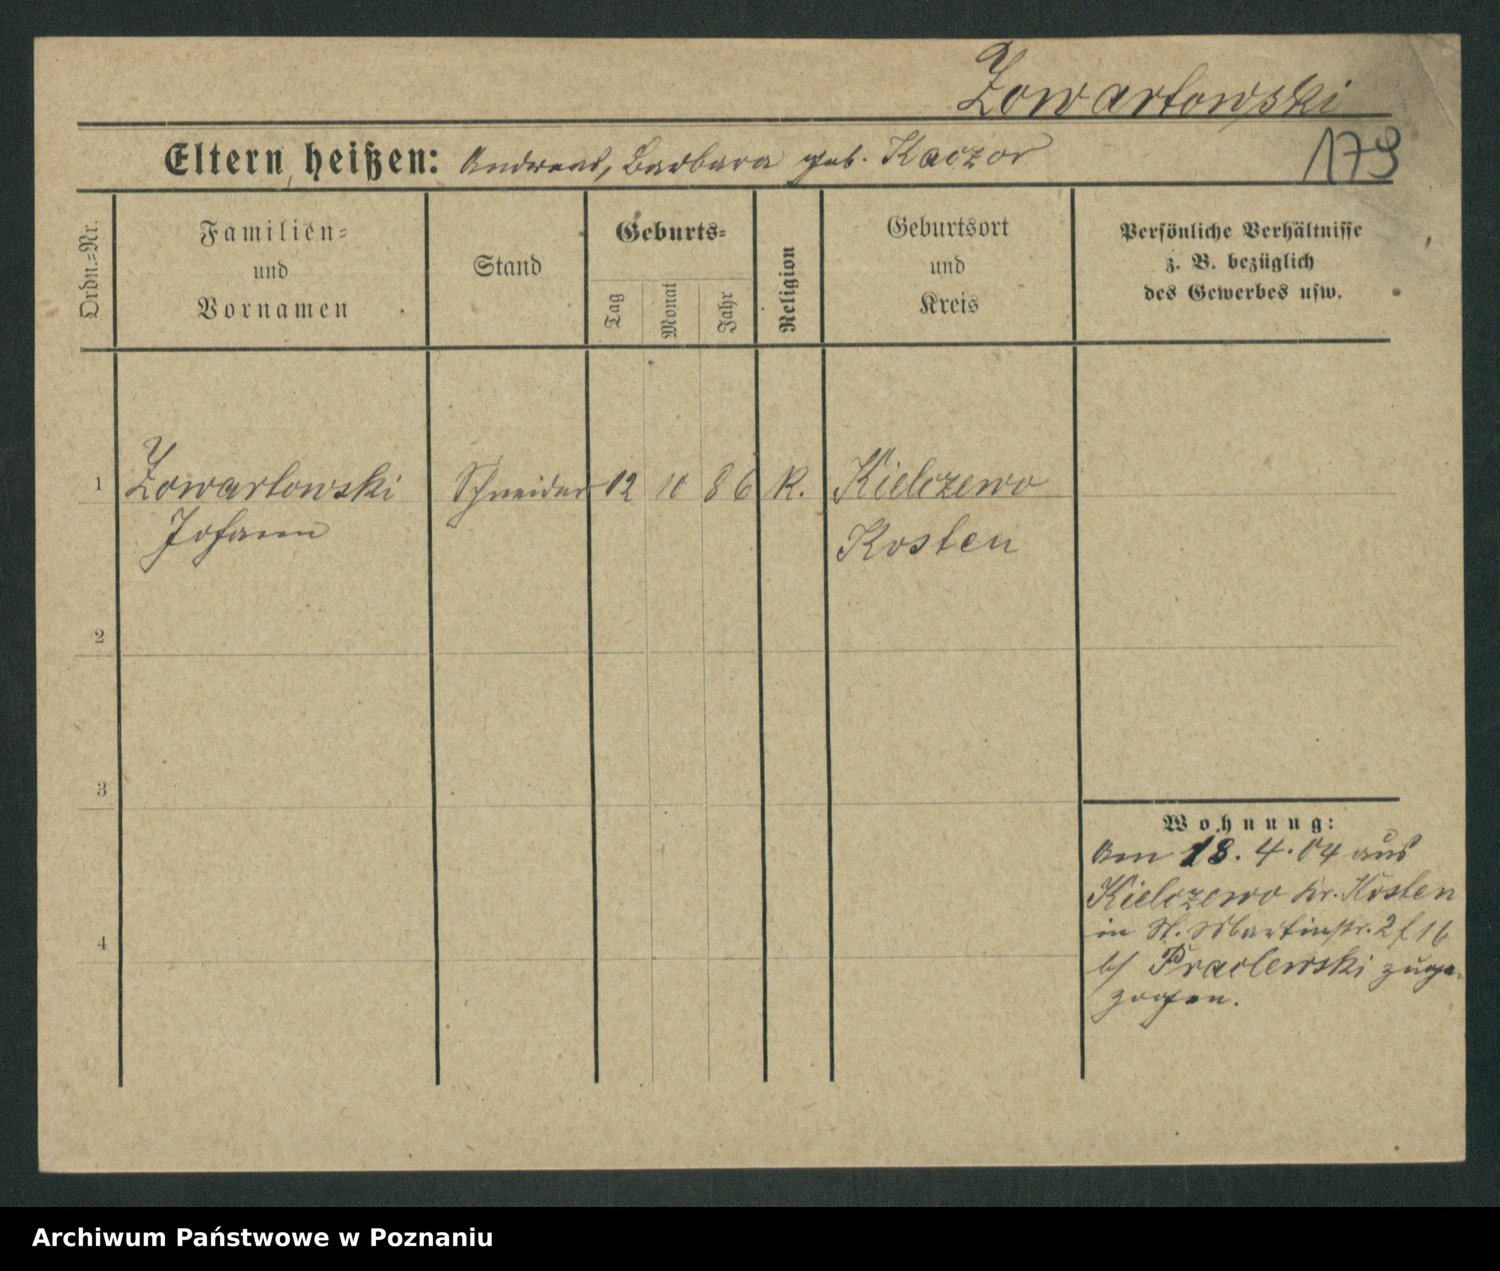 Zowartowski
Eltern heißen: Andreas, Barbara geb. Kaczor
179
Ordn.-Nr.
Familien-
und
Vornamen
Stand
Geburts-
Tag
Monat
Jahr
Religion
Geburtsort
und
Kreis
Persönliche Verhältnisse
z. B. bezüglich
des Gewerbes usw.
1 Zowartowski Schneider 12 10 86 K. Kielczewo
Johann Kosten
2
3
4
Wohnung:
Am 18. 4. 04 aus
Kielczewo Kr. Kosten
in St. Martinstr. 2
b/ Praclewski zuge-
zogen.
Archiwum Państwowe w Poznaniu